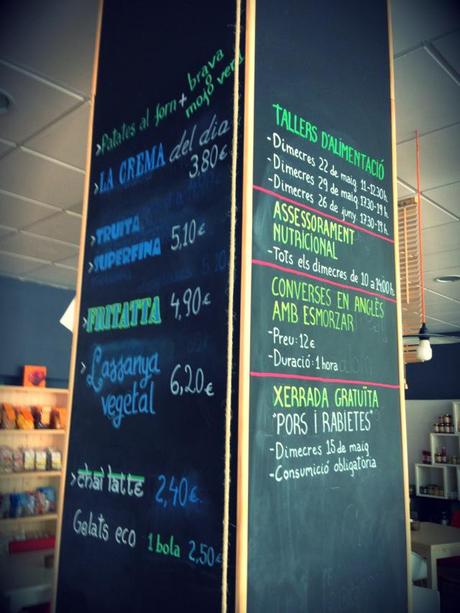 >Patates al forn + brava
mojo verd
>LA CREMA del dia
3,80€
>TRUITA
>SUPERFINA 5,10€
>FRITATTA 4,90€
>Lassanya
vegetal 6,20€
>chai latte 2,40€
Gelats eco 1 bola 2,50€
TALLERS D'ALIMENTACIÓ
-Dimecres 22 de maig 11-12:30h
-Dimecres 29 de maig 17:30-19h
-Dimecres 26 de juny 17:30-19h
ASSESSORAMENT
NUTRICIONAL
-Tots els dimecres de 10 a 14:00h
CONVERSES EN ANGLÈS
AMB ESMORZAR
-Preu: 12€
-Duració: 1 hora
XERRADA GRATUÏTA
"PORS I RABIETES"
-Dimecres 15 de maig
-Consumició obligatòria